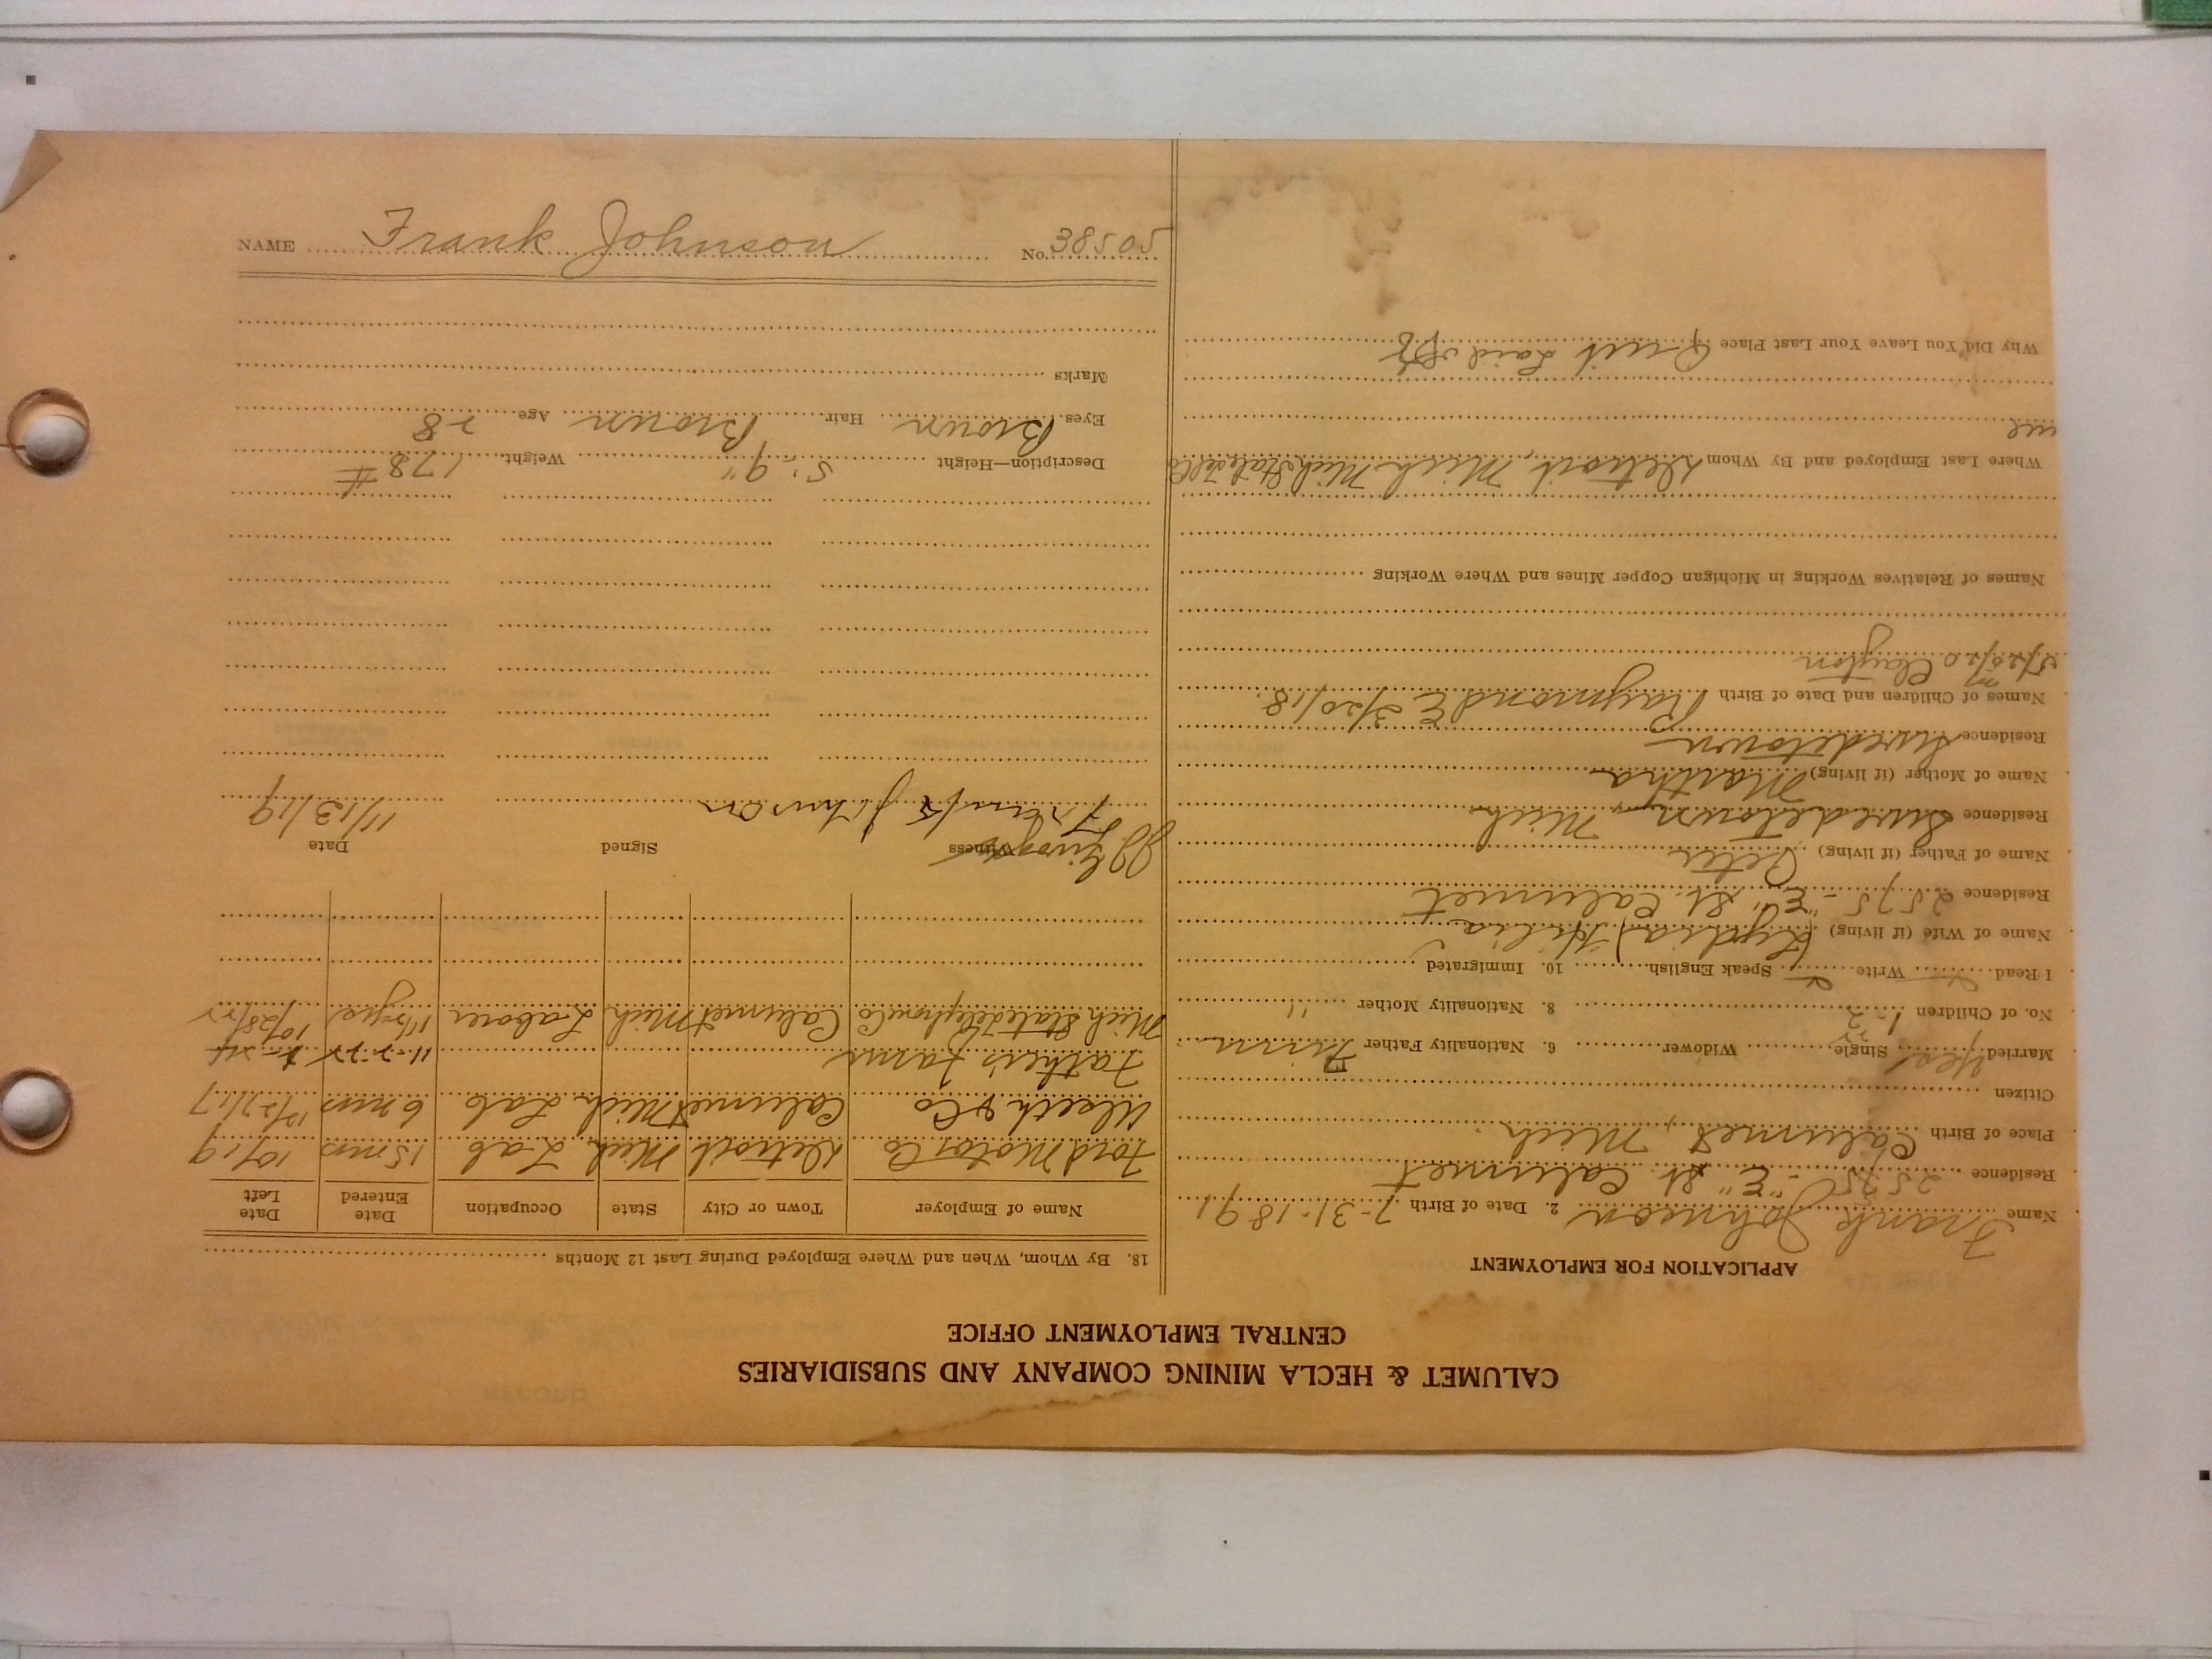 CALUMET & HECLA MINING COMPANY AND SUBSIDIARIES
CENTRAL EMPLOYMENT OFFICE
APPLICATION FOR EMPLOYMENT
Name Frank Johnson 2. Date of Birth 7-31-1891
Residence 2575 "E" St. Calumet
Place of Birth Calumet, Mich
Citizen
Married Yes Single Widower 6. Nationality Father Finn
No. of Children 1 2 8. Nationality Mother "
I Read Write Speak English 10. Immigrated
Name of Wife (if living) Lydia Hilia
Residence 2575 - "E" St. Calumet
Name of Father (if living) Peter
Residence Swedetown, Mich
Name of Mother (if living) Martha
Residence Swedetown
Names of Children and Date of Birth Raymond E 3/20/18.
5/20/20 Clayton
Names of Relatives Working in Michigan Copper Mines and Where Working
Where Last Employed and By Whom Detroit, Mich Mich State Tel Co
me
Why Did You Leave Your Last Place Quit Laid off
18. By Whom, When and Where Employed During Last 12 Months
Name of Employer Town or City State Occupation Date Entered Date Left
Ford Motor Co Detroit Mich Lab 15 mos 10/19
& Co Calumet Mich Lab 6 mos 12/27/17
Father's Farm 11-2-22
Mich State Telephone Co Calumet Mich Laborer 10/28/22
Witness Signed Date
Frank Johnson 11/13/19
Description—Height 5'-9" Weight 178 #
Eyes Brown Hair Brown Age 28
Marks
NAME Frank Johnson No. 38505